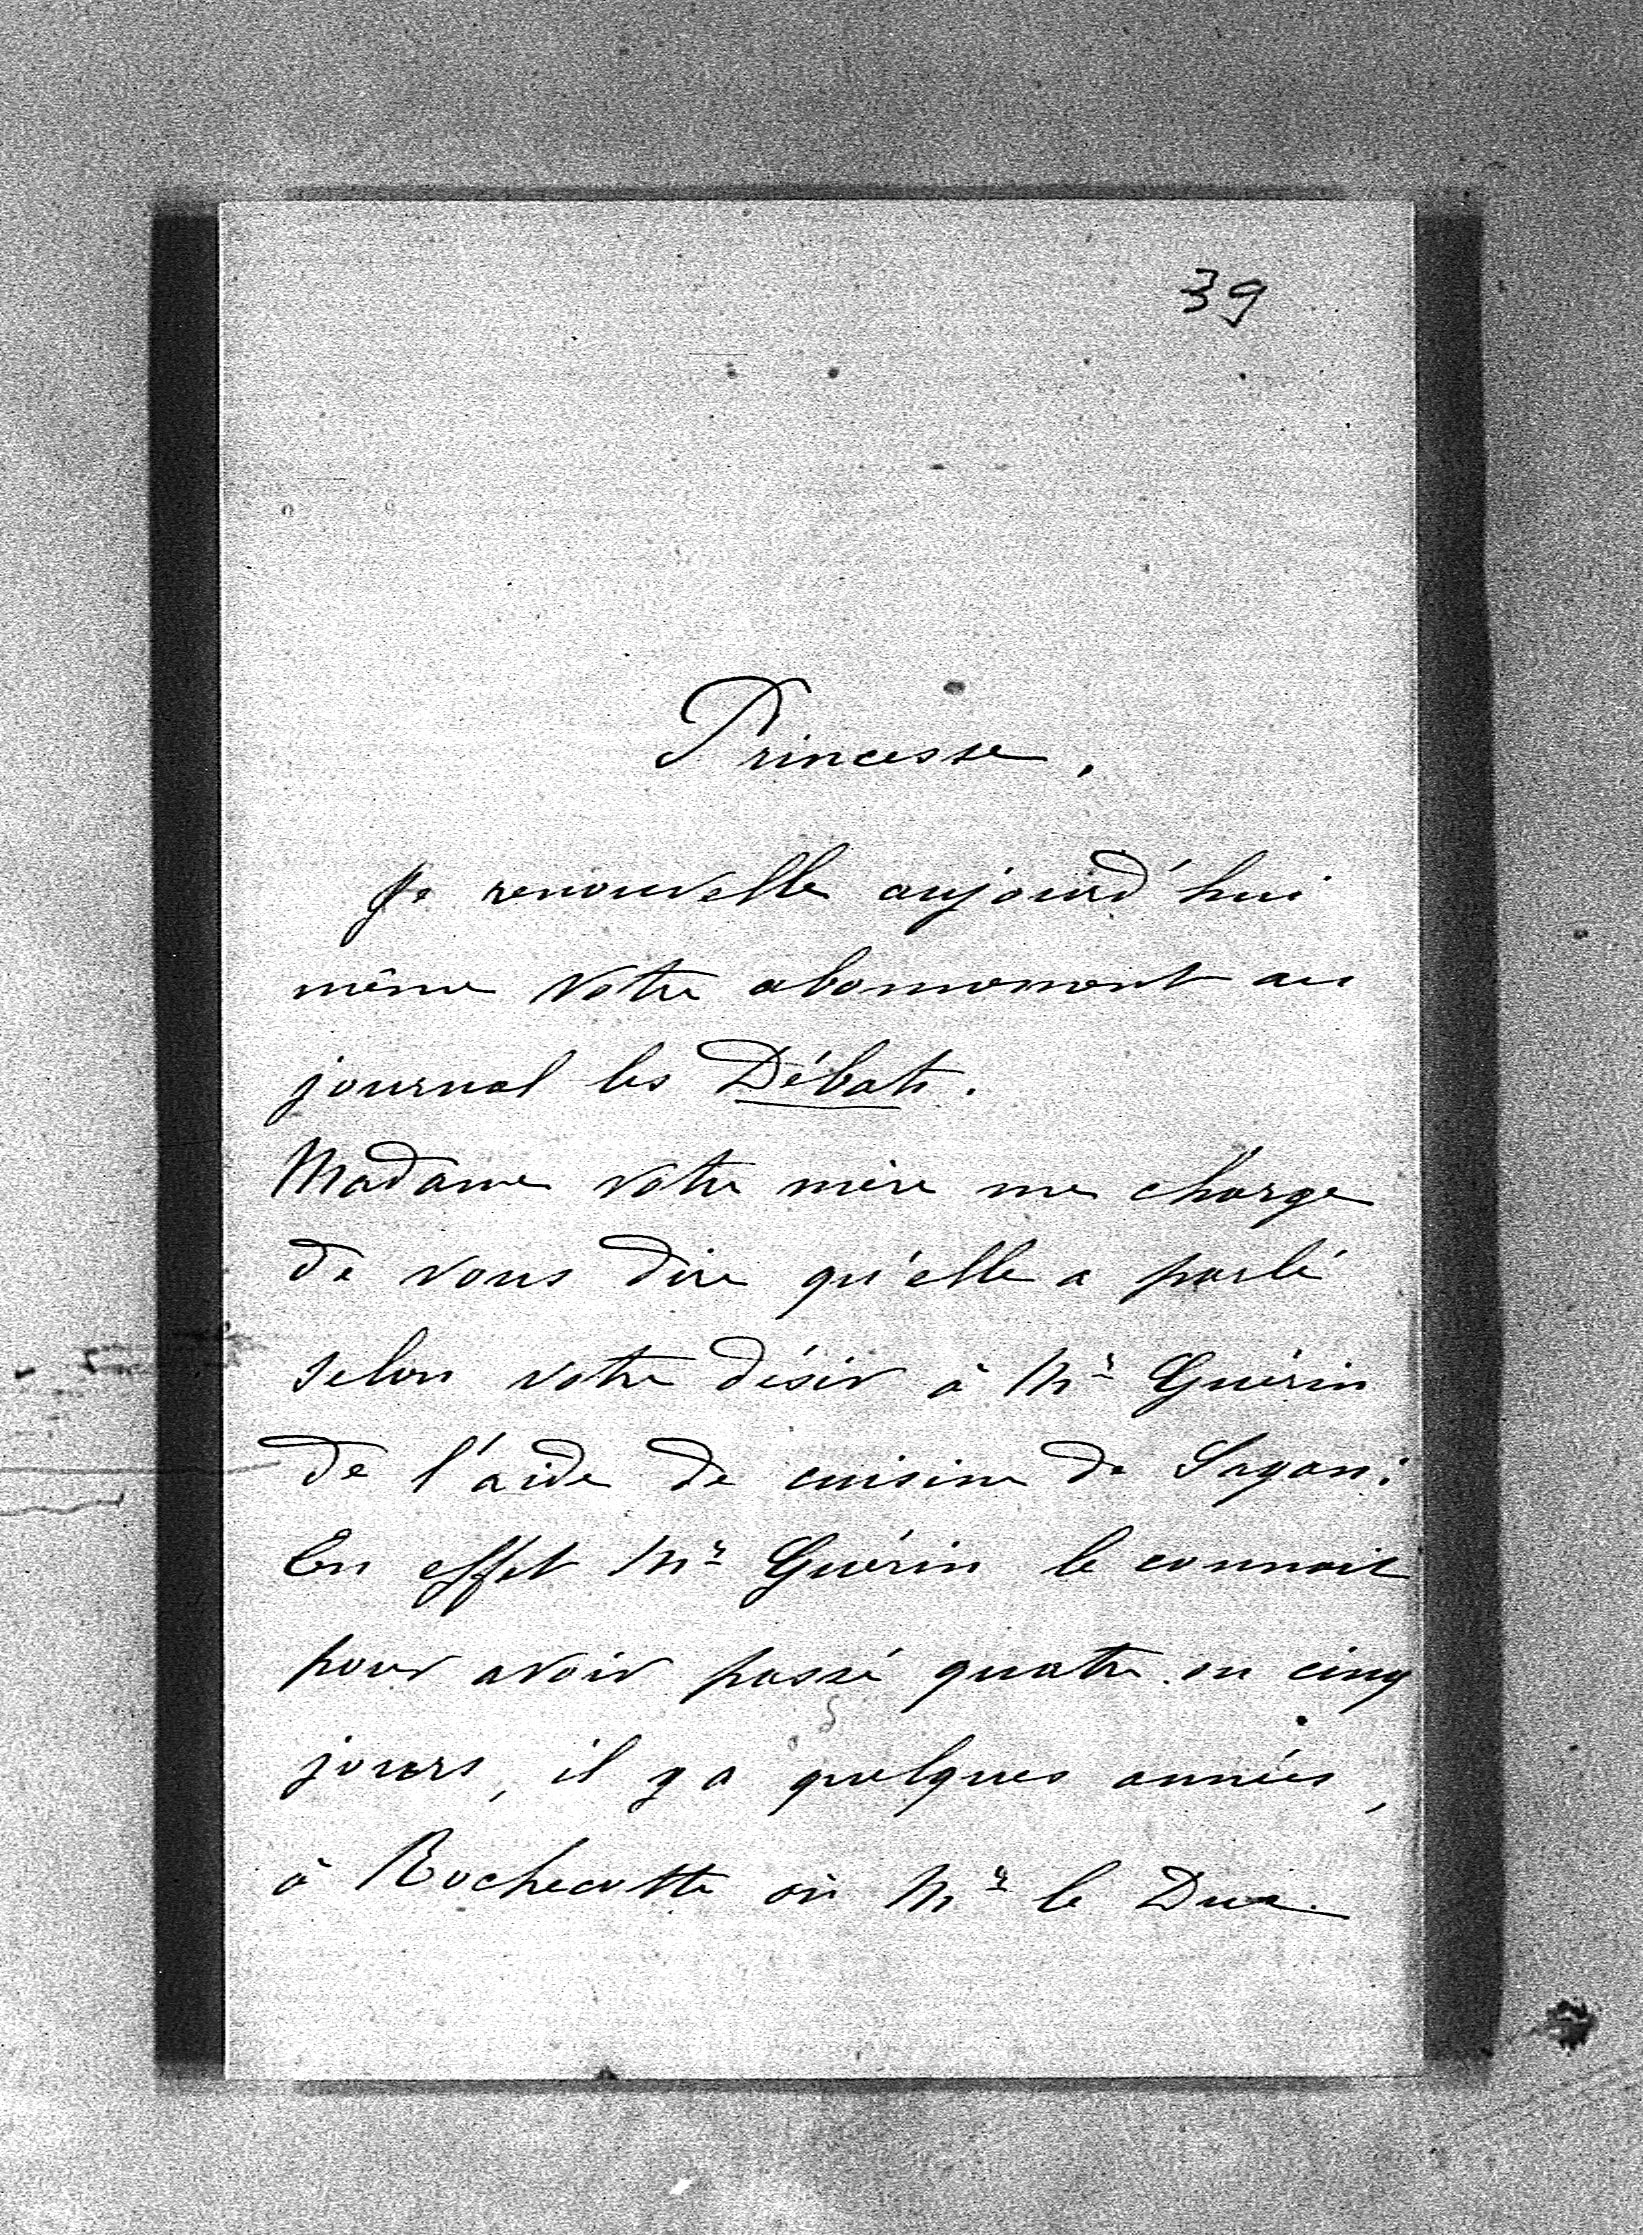 39
Princesse.
Je renouvelle aujourd'hui
même votre abonnement au
journal les Débats.
Madame votre mère me charge
de vous dire qu'elle a parlé
selon votre désir à Mr Guérin
de l'aide de cuisine de Sagan:
En effet Mr Guérin le connait
pour avoir passé quatre ou cinq
jours, il y a quelques années,
à Rochecotte où Mr le Duc